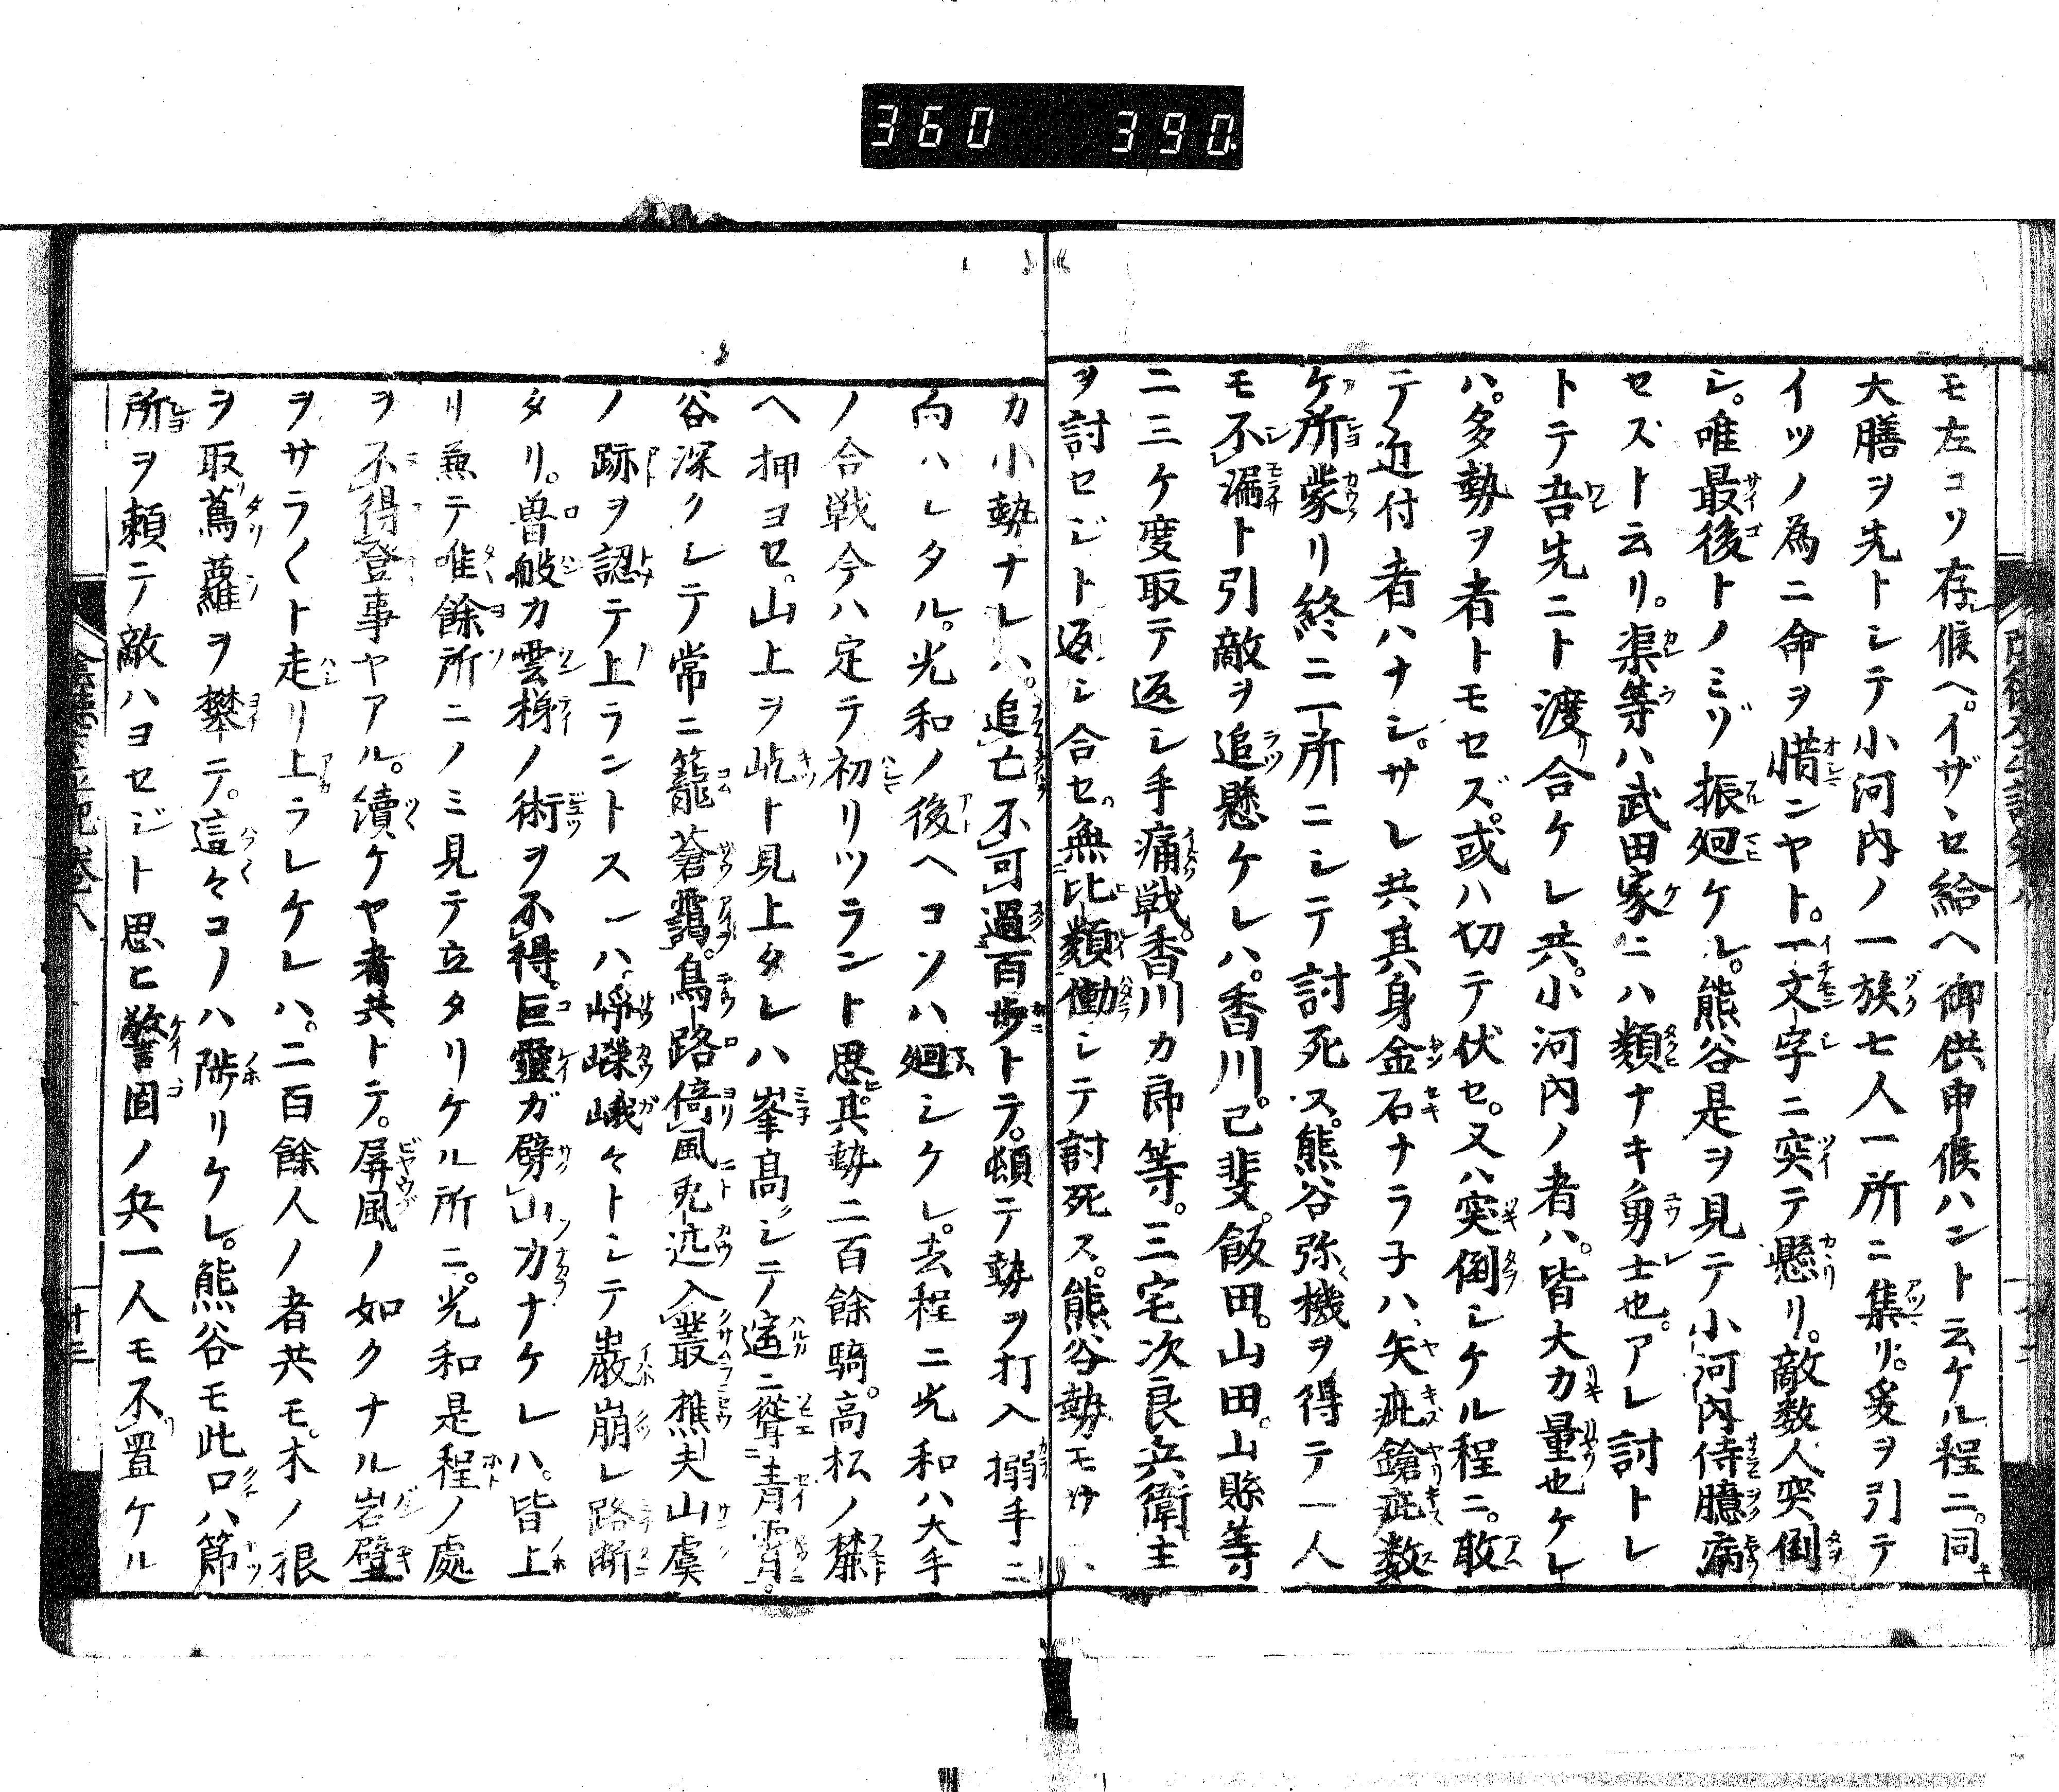 360 390
モ左コソ存候ヘ。イザヽセ給ヘ御供申候ハント云ケル程ニ。同
大膳ヲ先トシテ小河内ノ一族七人一所ニ集リ。爰ヲ引テ
イツノ為ニ命ヲ惜ンヤト。一文字ニ突テ懸リ。敵数人突倒
シ。唯最後トノミゾ振廻ケル。熊谷是ヲ見テ小河内侍臆病
セズト云リ。渠等ハ武田家ニハ類ナキ勇士也。アレ討トレ
トテ吾先ニト渡リ合ケレ共。小河内ノ者ハ。皆大力量也ケレ
ハ。多勢ヲ者トモセズ。或ハ切テ伏セ。又ハ突倒シケル程ニ。敢
テ近付者ハナシ。サレ共其身金石ナラ子ハ、矢疵鎗疵数
ケ所蒙リ終ニ一所ニシテ討死ス。熊谷弥機ヲ得テ一人
モ不漏ト引敵ヲ追懸ケレハ。香川。己斐。飯田。山田。山縣等
ニ三ケ度取テ返シ手痛戦。香川カ郎等。三宅次良兵衛主
ヲ討セジト返シ合セ。無比類働シテ討死ス。熊谷勢モ
カ小勢ナレハ。追亡不可過百歩トテ。頓テ勢ヲ打入搦手ニ
向ハレタル。光和ノ後ヘコソハ廻シケレ。去程ニ光和ハ大手
ノ合戦今ハ定テ初リツラント思。其勢二百餘騎。高松ノ麓
ヘ押ヨセ。山上ヲ屹ト見上タレハ峯高シテ遙ニ聳青霄。
谷深クシテ常ニ籠蒼靄。鳥路倚風兎迒入叢樵夫山虞
ノ跡ヲ認テ上ラントスレハ、崢嶸峨々トシテ巌崩レ路断
タリ。魯般カ雲梯ノ術ヲ不得。巨靈ガ劈山カナケレハ。皆上
リ兼テ唯餘所ニノミ見テ立タリケル所ニ。光和是程ノ處
ヲ不得登事ヤアル。續ケヤ者共トテ。屏風ノ如クナル岩壁
ヲサラ〱ト走リ上ラレケレハ。二百餘人ノ者共モ。木ノ根
ヲ取蔦蘿ヲ攀テ。這々コソハ陟リケレ。熊谷モ此口ハ節
所ヲ頼テ敵ハヨセジト思ヒ警固ノ兵一人モ不置ケル